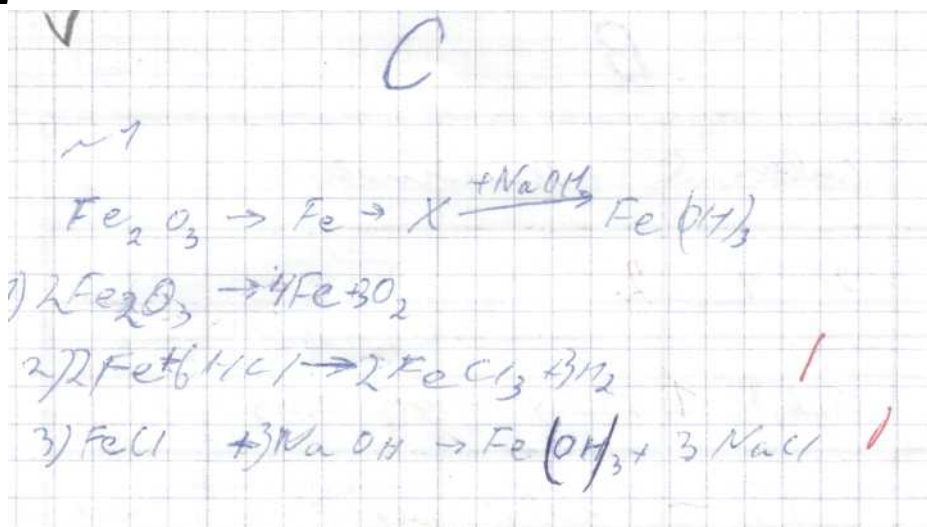 C
~1
Fe₂O₃ → Fe → X +NaOH→ Fe(OH)₃
1) 2Fe₂O₃ → 4Fe+3O₂
2) 2Fe+6HCl → 2FeCl₃ + 3H₂
3) FeCl +3NaOH → Fe(OH)₃ + 3NaCl